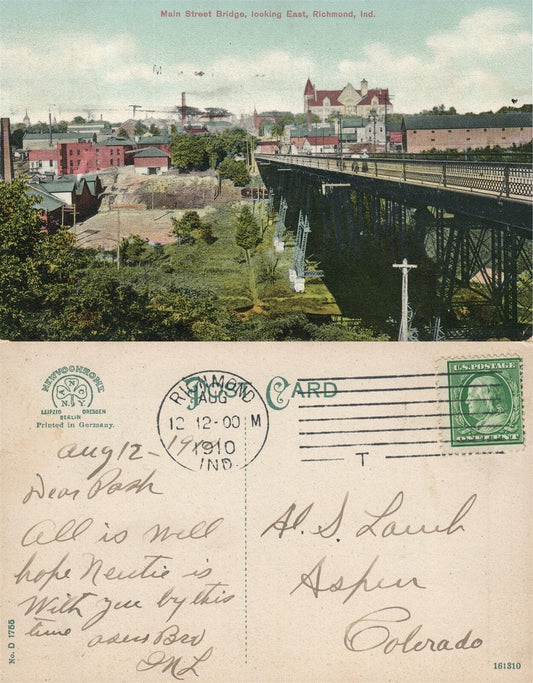 Main Street Bridge, looking East, Richmond, Ind.
NEWVOCHROME
N.Y.
LEIPZIG DRESDEN
BERLIN
Printed in Germany.
POST CARD
RICHMOND
AUG
12 12-00 M
1910
IND.
T
U.S. POSTAGE
ONE CENT
Aug 12 - 1910
Dear
All is well
hope Neutie is
With you by this
time Bro
A. S. Lamb
Aspen
Colorado
No. D 1755
161310